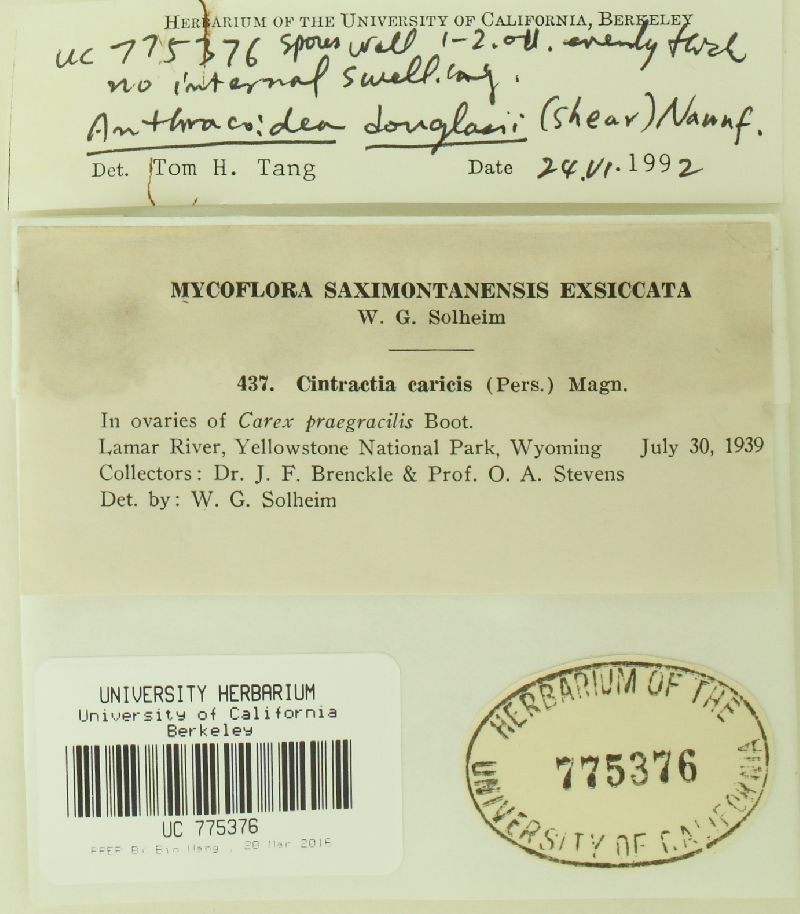 HERBARIUM OF THE UNIVERSITY OF CALIFORNIA, BERKELEY
UC 775376 spores wall 1-2.0µ. evenly thick
no internal swelling.
Anthracoidea douglasii (Shear) Nannf.
Det. Tom H. Tang Date 24.VI.1992
MYCOFLORA SAXIMONTANENSIS EXSICCATA
W. G. Solheim
437. Cintractia caricis (Pers.) Magn.
In ovaries of Carex praegracilis Boot.
Lamar River, Yellowstone National Park, Wyoming July 30, 1939
Collectors: Dr. J. F. Brenckle & Prof. O. A. Stevens
Det. by: W. G. Solheim
UNIVERSITY HERBARIUM
University of California
Berkeley
UC 775376
PREP By Bin Wang , 28 Mar 2016
HERBARIUM OF THE
775376
UNIVERSITY OF CALIFORNIA